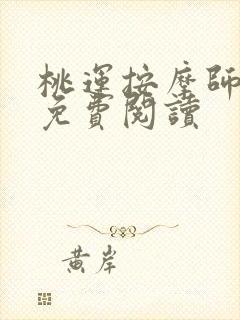 桃運按摩師
免費閱讀
黃岸